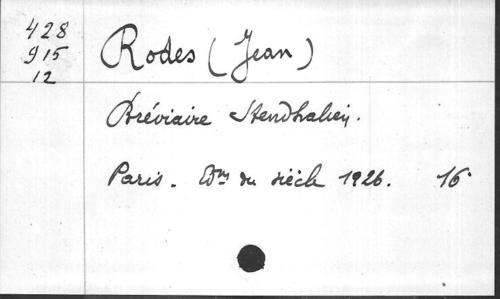 428
915
12
Rodes (Jean)
Bréviaire Stendhalien.
Paris. Edons du siècle 1926. 16°